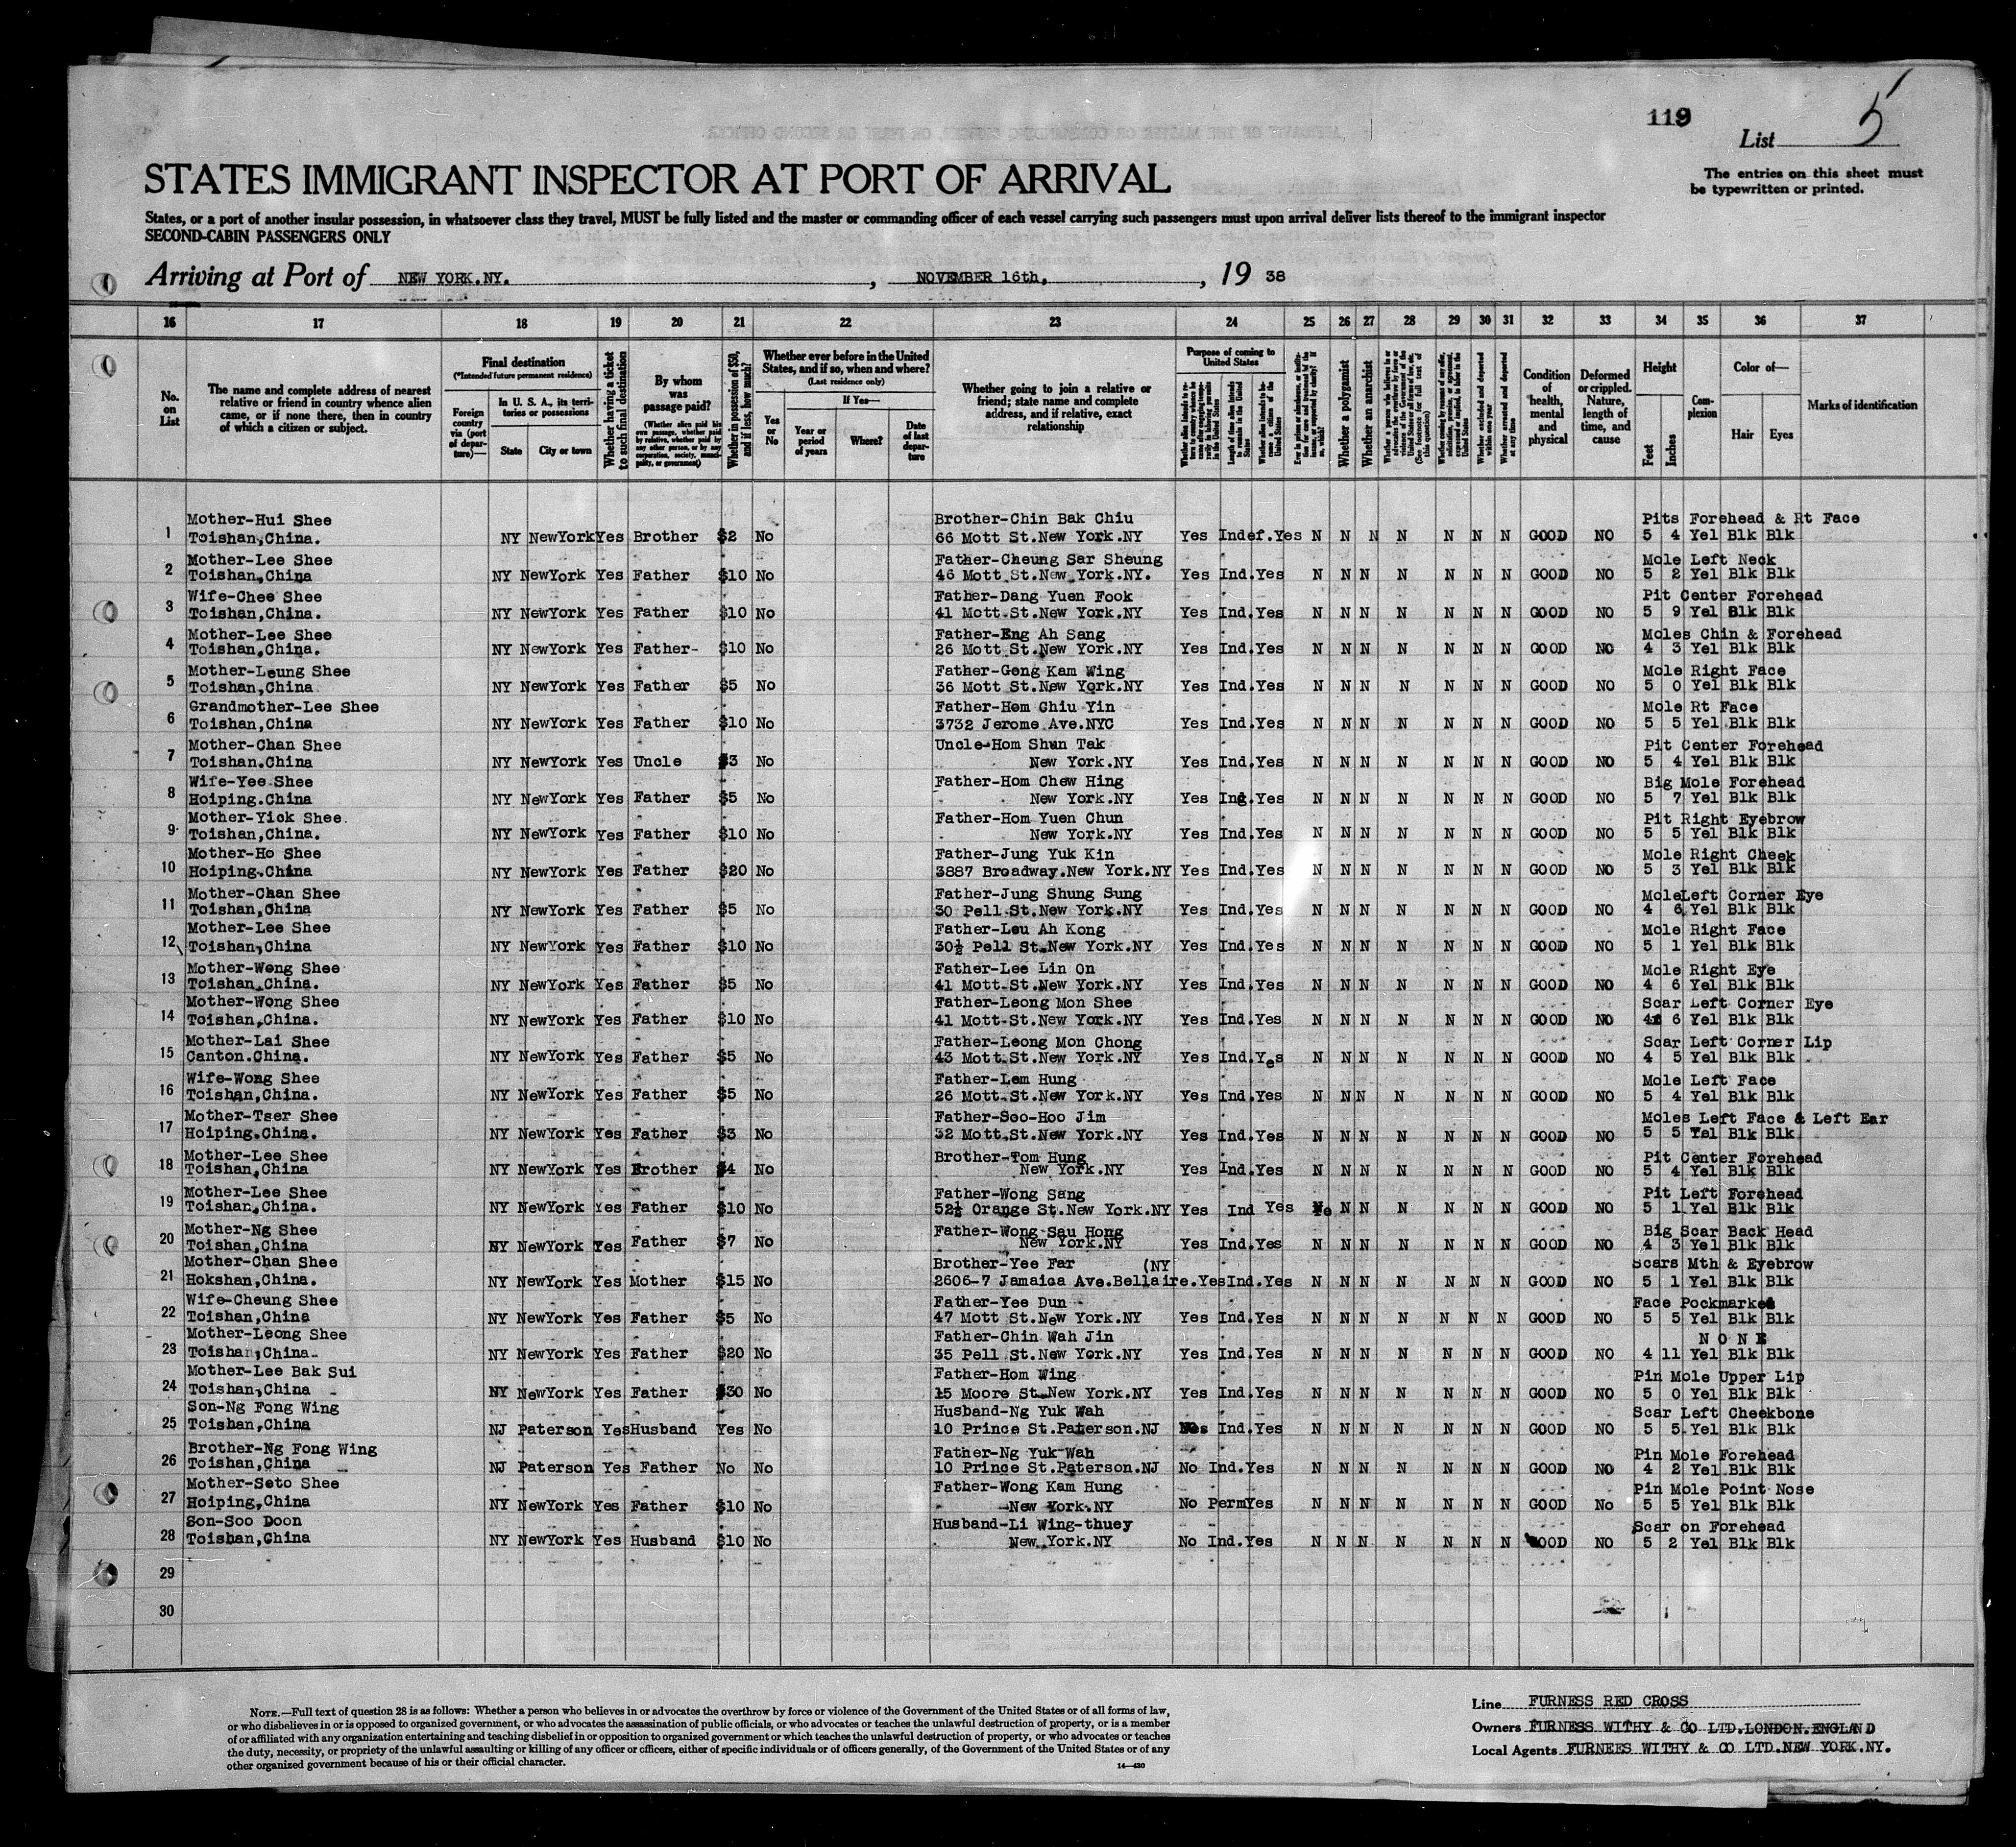 119
List 5
STATES IMMIGRANT INSPECTOR AT PORT OF ARRIVAL
The entries on this sheet must
be typewritten or printed.
States, or a port of another insular possession, in whatsoever class they travel, MUST be fully listed and the master or commanding officer of each vessel carrying such passengers must upon arrival deliver lists thereof to the immigrant inspector
SECOND-CABIN PASSENGERS ONLY
Arriving at Port of NEW YORK.NY. , NOVEMBER 16th, , 19 38
16 17 18 19 20 21 22 23 24 25 26 27 28 29 30 31 32 33 34 35 36 37
No. on List
The name and complete address of nearest relative or friend in country whence alien came, or if none there, then in country of which a citizen or subject.
Final destination
(*Intended future permanent residence)
Foreign country via (port of departure)—
In U. S. A., its territories or possessions
State City or town
Whether having a ticket to such final destination
By whom was passage paid?
(Whether alien paid his own passage, whether paid by relative, whether paid by any other person, or by any corporation, society, municipality, or government)
Whether in possession of $50, and if less, how much?
Whether ever before in the United States, and if so, when and where?
(Last residence only)
Yes or No
If Yes—
Year or period of years
Where?
Date of last departure
Whether going to join a relative or friend; state name and complete address, and if relative, exact relationship
Purpose of coming to United States
Length of time alien intends to remain in the United States
Whether alien intends to become a citizen of the United States
Whether a polygamist
Whether an anarchist
Whether excluded and deported within one year
Whether arrested and deported at any time
Condition of health, mental and physical
Deformed or crippled. Nature, length of time, and cause
Height
Feet Inches
Complexion
Color of—
Hair Eyes
Marks of identification
Mother-Hui Shee Brother-Chin Bak Chiu Pits Forehead & Rt Face
1 Toishan,China. NY NewYork Yes Brother $2 No 66 Mott St.New York.NY Yes Indef.Yes N N N N N N N GOOD NO 5 4 Yel Blk Blk
Mother-Lee Shee Father-Cheung Sar Sheung Mole Left Neck
2 Toishan,China NY NewYork Yes Father $10 No 46 Mott St.New York.NY. Yes Ind.Yes N N N N N N N GOOD NO 5 2 Yel Blk Blk
Wife-Chee Shee Father-Dang Yuen Fook Pit Center Forehead
3 Toishan,China. NY NewYork Yes Father $10 No 41 Mott St.New York.NY Yes Ind.Yes N N N N N N N GOOD NO 5 9 Yel Blk Blk
Mother-Lee Shee Father-Eng Ah Sang Moles Chin & Forehead
4 Toishan,China. NY NewYork Yes Father- $10 No 26 Mott St.New York.NY Yes Ind.Yes N N N N N N N GOOD NO 4 3 Yel Blk Blk
Mother-Leung Shee Father-Gong Kam Wing Mole Right Face
5 Toishan,China NY NewYork Yes Father $5 No 36 Mott St.New York.NY Yes Ind.Yes N N N N N N N GOOD NO 5 0 Yel Blk Blk
Grandmother-Lee Shee Father-Hom Chiu Yin Mole Rt Face
6 Toishan,China NY NewYork Yes Father $10 No 3732 Jerome Ave.NYC Yes Ind.Yes N N N N N N N GOOD NO 5 5 Yel Blk Blk
Mother-Chan Shee Uncle-Hom Shun Tak Pit Center Forehead
7 Toishan.China NY NewYork Yes Uncle $3 No New York.NY Yes Ind.Yes N N N N N N N GOOD NO 5 4 Yel Blk Blk
Wife-Yee Shee Father-Hom Chew Hing Big Mole Forehead
8 Hoiping.China NY NewYork Yes Father $5 No New York.NY Yes Ind.Yes N N N N N N N GOOD NO 5 7 Yel Blk Blk
Mother-Yick Shee Father-Hom Yuen Chun Pit Right Eyebrow
9 Toishan,China. NY NewYork Yes Father $10 No New York.NY Yes Ind.Yes N N N N N N N GOOD NO 5 5 Yel Blk Blk
Mother-Ho Shee Father-Jung Yuk Kin Mole Right Cheek
10 Hoiping.China NY NewYork Yes Father $20 No 3887 Broadway.New York.NY Yes Ind.Yes N N N N N N N GOOD NO 5 3 Yel Blk Blk
Mother-Chan Shee Father-Jung Shung Sung MoleLeft Corner Eye
11 Toishan,China NY NewYork Yes Father $5 No 30 Pell St.New York.NY Yes Ind.Yes N N N N N N N GOOD NO 4 6 Yel Blk Blk
Mother-Lee Shee Father-Leu Ah Kong Mole Right Face
12 Toishan,China NY NewYork Yes Father $10 No 30½ Pell St.New York.NY Yes Ind.Yes N N N N N N N GOOD NO 5 1 Yel Blk Blk
Mother-Wong Shee Father-Lee Lin On Mole Right Eye
13 Toishan.China. NY NewYork Yes Father $5 No 41 Mott St.New York.NY Yes Ind.Yes N N N N N N N GOOD NO 4 6 Yel Blk Blk
Mother-Wong Shee Father-Leong Mon Shee Scar Left Corner Eye
14 Toishan,China. NY NewYork Yes Father $10 No 41 Mott St.New York.NY Yes Ind.Yes N N N N N N N GOOD NO 4 6 Yel Blk Blk
Mother-Lai Shee Father-Leong Mon Chong Scar Left Corner Lip
15 Canton.China. NY NewYork Yes Father $5 No 43 Mott St.New York.NY Yes Ind.Yes N N N N N N N GOOD NO 4 5 Yel Blk Blk
Wife-Wong Shee Father-Lem Hung Mole Left Face
16 Toishan,China. NY NewYork Yes Father $5 No 26 Mott St.New York.NY Yes Ind.Yes N N N N N N N GOOD NO 5 4 Yel Blk Blk
Mother-Tser Shee Father-Soo-Hoo Jim Moles Left Face & Left Ear
17 Hoiping.China. NY NewYork Yes Father $3 No 32 Mott St.New York.NY Yes Ind.Yes N N N N N N N GOOD NO 5 5 Yel Blk Blk
Mother-Lee Shee Brother-Tom Hung Pit Center Forehead
18 Toishan,China NY NewYork Yes Brother $4 No New York.NY Yes Ind.Yes N N N N N N N GOOD NO 5 4 Yel Blk Blk
Mother-Lee Shee Father-Wong Sang Pit Left Forehead
19 Toishan,China. NY NewYork Yes Father $10 No 52½ Orange St.New York.NY Yes Ind Yes N N N N N N GOOD NO 5 1 Yel Blk Blk
Mother-Ng Shee Father-Wong Sau Hong Big Scar Back Head
20 Toishan,China NY NewYork Yes Father $7 No New York.NY Yes Ind.Yes N N N N N N N GOOD NO 4 3 Yel Blk Blk
Mother-Chan Shee Brother-Yee Far (NY Scars Mth & Eyebrow
21 Hokshan,China. NY NewYork Yes Mother $15 No 2606-7 Jamaica Ave.Bellaire.YesInd.Yes N N N N N N N GOOD NO 5 1 Yel Blk Blk
Wife-Cheung Shee Father-Yee Dun Face Pockmarked
22 Toishan,China NY NewYork Yes Father $5 No 47 Mott St.New York.NY Yes Ind.Yes N N N N N N N GOOD NO 5 5 Yel Blk Blk
Mother-Leong Shee Father-Chin Wah Jin N O N E
23 Toishan,China NY NewYork Yes Father $20 No 35 Pell St.New York.NY Yes Ind.Yes N N N N N N N GOOD NO 4 11 Yel Blk Blk
Mother-Lee Bak Sui Father-Hom Wing Pin Mole Upper Lip
24 Toishan,China NY NewYork Yes Father $30 No 15 Moore St.New York.NY Yes Ind.Yes N N N N N N N GOOD NO 5 0 Yel Blk Blk
Son-Ng Fong Wing Husband-Ng Yuk Wah Scar Left Cheekbone
25 Toishan,China NJ Paterson YesHusband Yes No 10 Prince St.Paterson.NJ Ind.Yes N N N N N N N GOOD NO 5 5 Yel Blk Blk
Brother-Ng Fong Wing Father-Ng Yuk Wah Pin Mole Forehead
26 Toishan,China NJ Paterson Yes Father No No 10 Prince St.Paterson.NJ No Ind.Yes N N N N N N N GOOD NO 4 2 Yel Blk Blk
Mother-Seto Shee Father-Wong Kam Hung Pin Mole Point Nose
27 Hoiping,China NY NewYork Yes Father $10 No New York.NY No PermYes N N N N N N N GOOD No 5 5 Yel Blk Blk
Son-Soo Doon Husband-Li Wing-thuey Scar on Forehead
28 Toishan,China NY NewYork Yes Husband $10 No New York.NY No Ind.Yes N N N N N N N GOOD NO 5 2 Yel Blk Blk
29
30
NOTE.—Full text of question 28 is as follows: Whether a person who believes in or advocates the overthrow by force or violence of the Government of the United States or of all forms of law,
or who disbelieves in or is opposed to organized government, or who advocates the assassination of public officials, or who advocates or teaches the unlawful destruction of property, or is a member
of or affiliated with any organization entertaining and teaching disbelief in or opposition to organized government or which teaches the unlawful destruction of property, or who advocates or teaches
the duty, necessity, or propriety of the unlawful assaulting or killing of any officer or officers, either of specific individuals or of officers generally, of the Government of the United States or of any
other organized government because of his or their official character.
14—430
Line FURNESS RED CROSS
Owners FURNESS WITHY & CO LTD.LONDON.ENGLAND
Local Agents FURNEES WITHY & CO LTD.NEW YORK.NY.